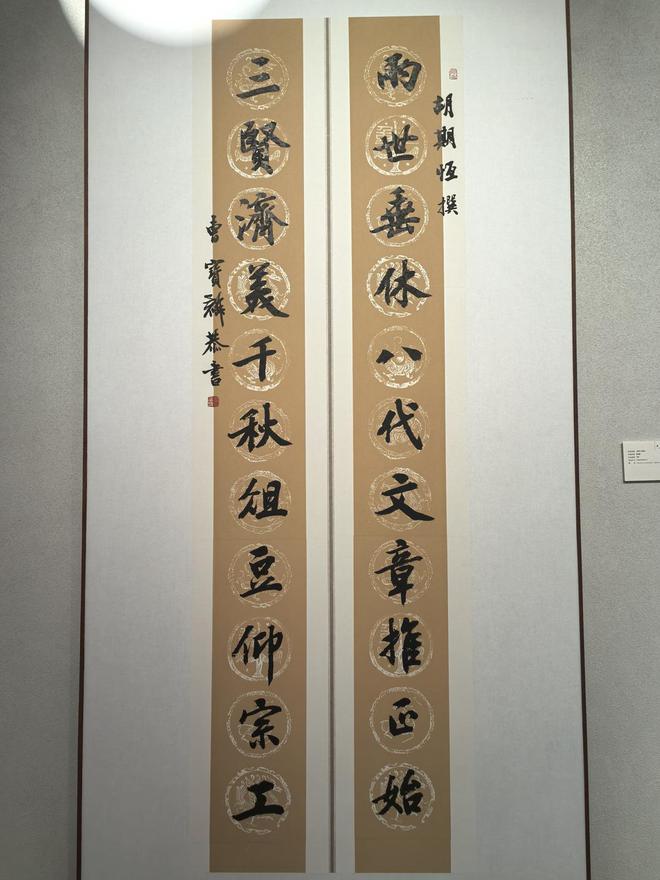 胡期恆撰
兩世垂休八代文章推正始
三賢濟美千秋俎豆仰宗工
曹寶麟恭書